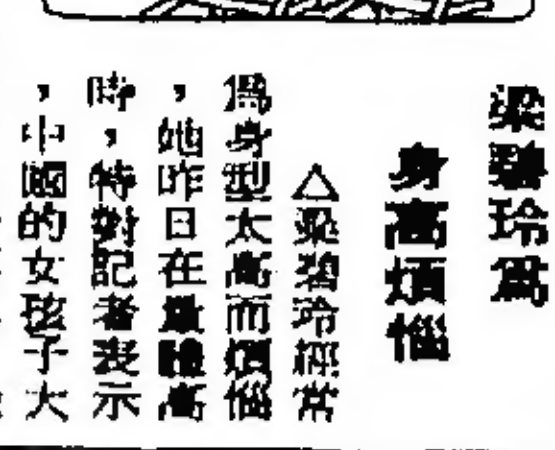 梁碧玲爲
身高煩惱
△梁碧玲經常
爲身型太高而煩惱
，她昨日在量體高
時，特對記者表示
，中國的女孩子大